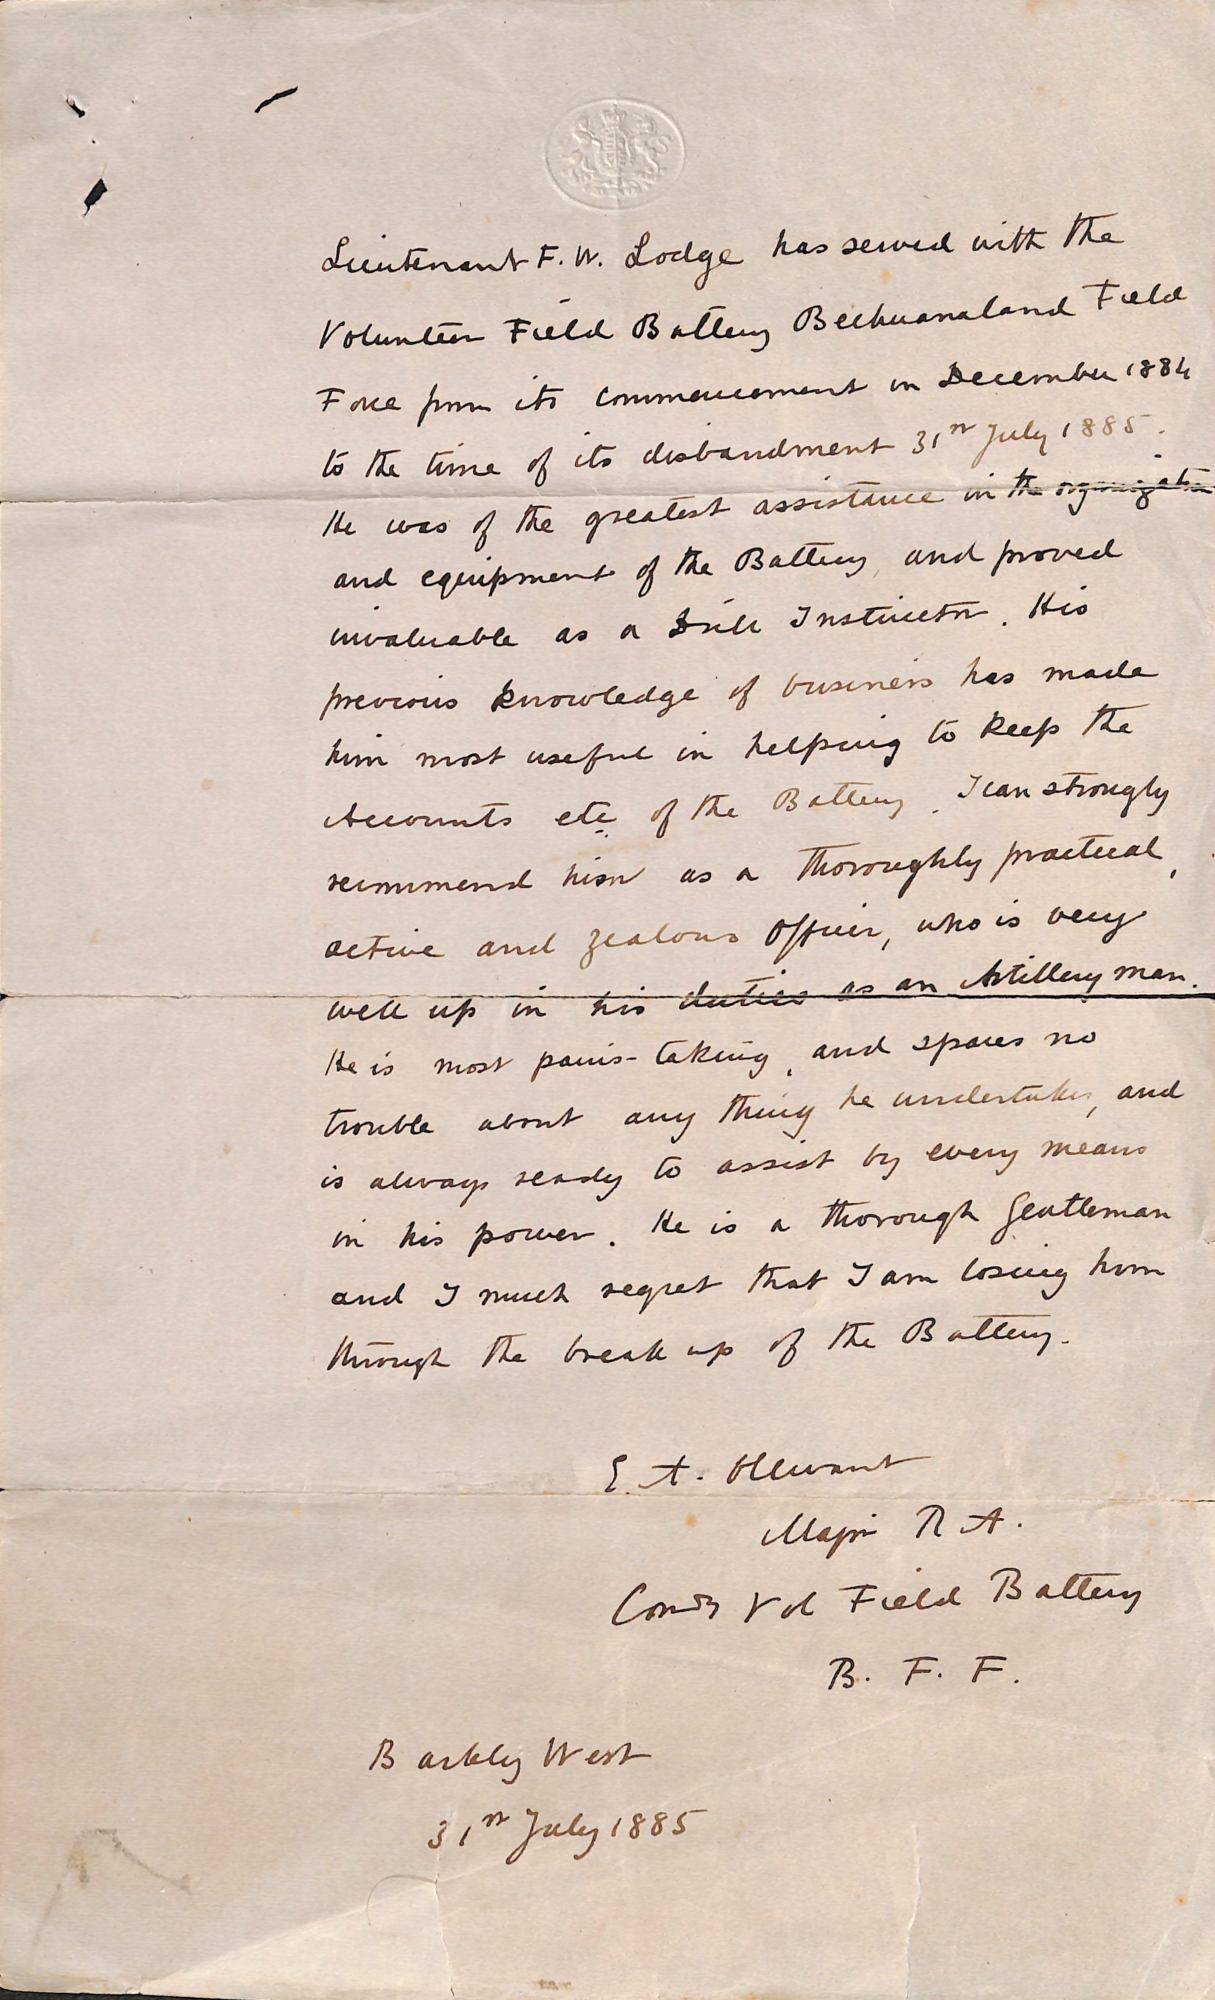 Lieutenant F. W. Lodge has served with the
Volunteer Field Battery Bechuanaland Field
Force from its commencement in December 1884
to the time of its disbandment 31st July 1885.
He was of the greatest assistance in the organization
and equipment of the Battery, and proved
invaluable as a Drill Instructor. His
previous knowledge of business has made
him most useful in helping to keep the
Accounts etc of the Battery. I can strongly
recommend him as a thoroughly practical,
active and zealous Officer, who is very
well up in his duties as an Artillery man.
He is most pains-taking, and spares no
trouble about any thing he undertakes, and
is always ready to assist by every means
in his power. He is a thorough Gentleman
and I much regret that I am losing him
through the break up of the Battery.
E. A. Ollivant
Major R A.
Comdg Vol Field Battery
B. F. F.
Barkly West
31st July 1885